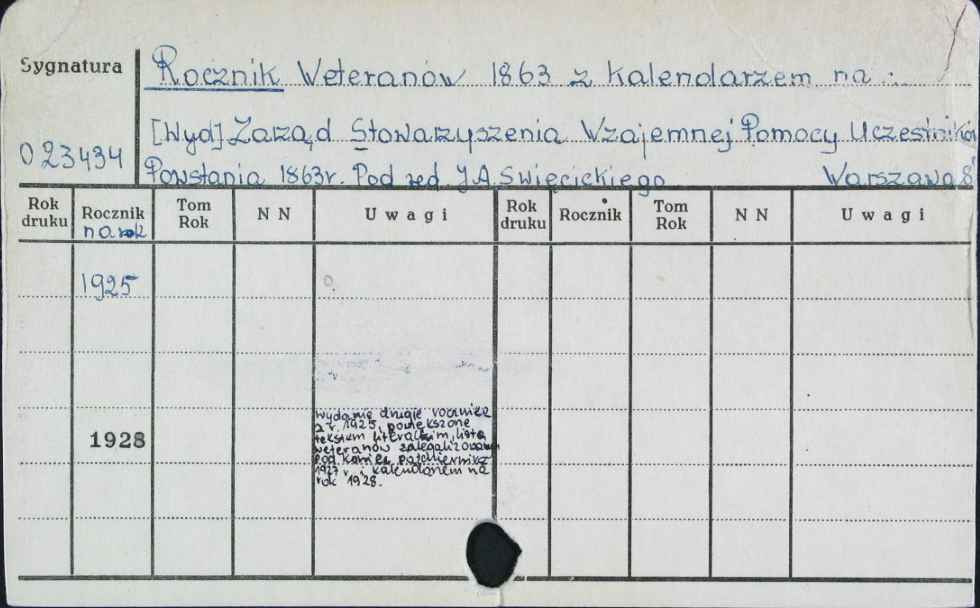 Sygnatura
Rocznik Weteranów 1863 z kalendarzem na :
[Wyd] Zarząd Stowarzyszenia Wzajemnej Pomocy Uczestników
023434
Powstania 1863r. Pod red J.A. Święcickiego Warszawa 8
Rok druku Rocznik na rok Tom Rok N N Uwagi Rok druku Rocznik Tom Rok N N Uwagi
1925
1928
wydanie drugie rocznika
z r. 1925, powiększone
tekstem literackim, listą
weteranów zalegalizowanych
pod koniec października
1927 r. i kalendarzem na
rok 1928.